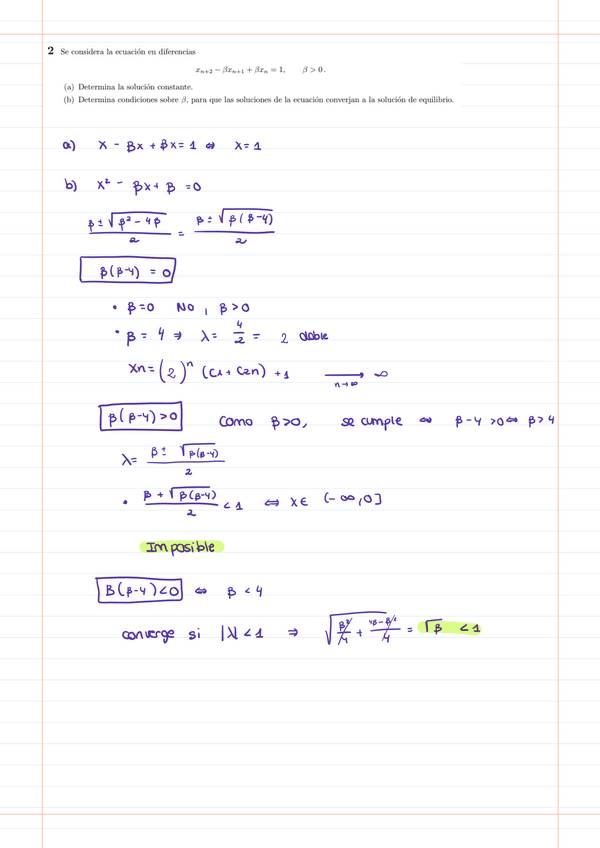 2 Se considera la ecuación en diferencias
xₙ₊₂ − βxₙ₊₁ + βxₙ = 1, β > 0.
(a) Determina la solución constante.
(b) Determina condiciones sobre β, para que las soluciones de la ecuación converjan a la solución de equilibrio.
a) x - βx + βx = 1 ⇔ x = 1
b) x² - βx + β = 0
(β ± √(β² - 4β))/2 = (β ± √(β(β-4)))/2
β(β-4) = 0
• β=0 No, β>0
• β = 4 ⇒ λ = 4/2 = 2 doble
Xn = (2)ⁿ (C1 + C2n) + 1 ⟶ n→∞ ∞
β(β-4)>0 Como β>0, se cumple ⇔ β-4 >0 ⇔ β>4
λ = (β ± √(β(β-4)))/2
• (β + √(β(β-4)))/2 < 1 ⇔ x ∈ (-∞,0]
Imposible
β(β-4)<0 ⇔ β < 4
converge si |λ| < 1 ⇒ √(β²/4 + (4β-β²)/4) = √β < 1